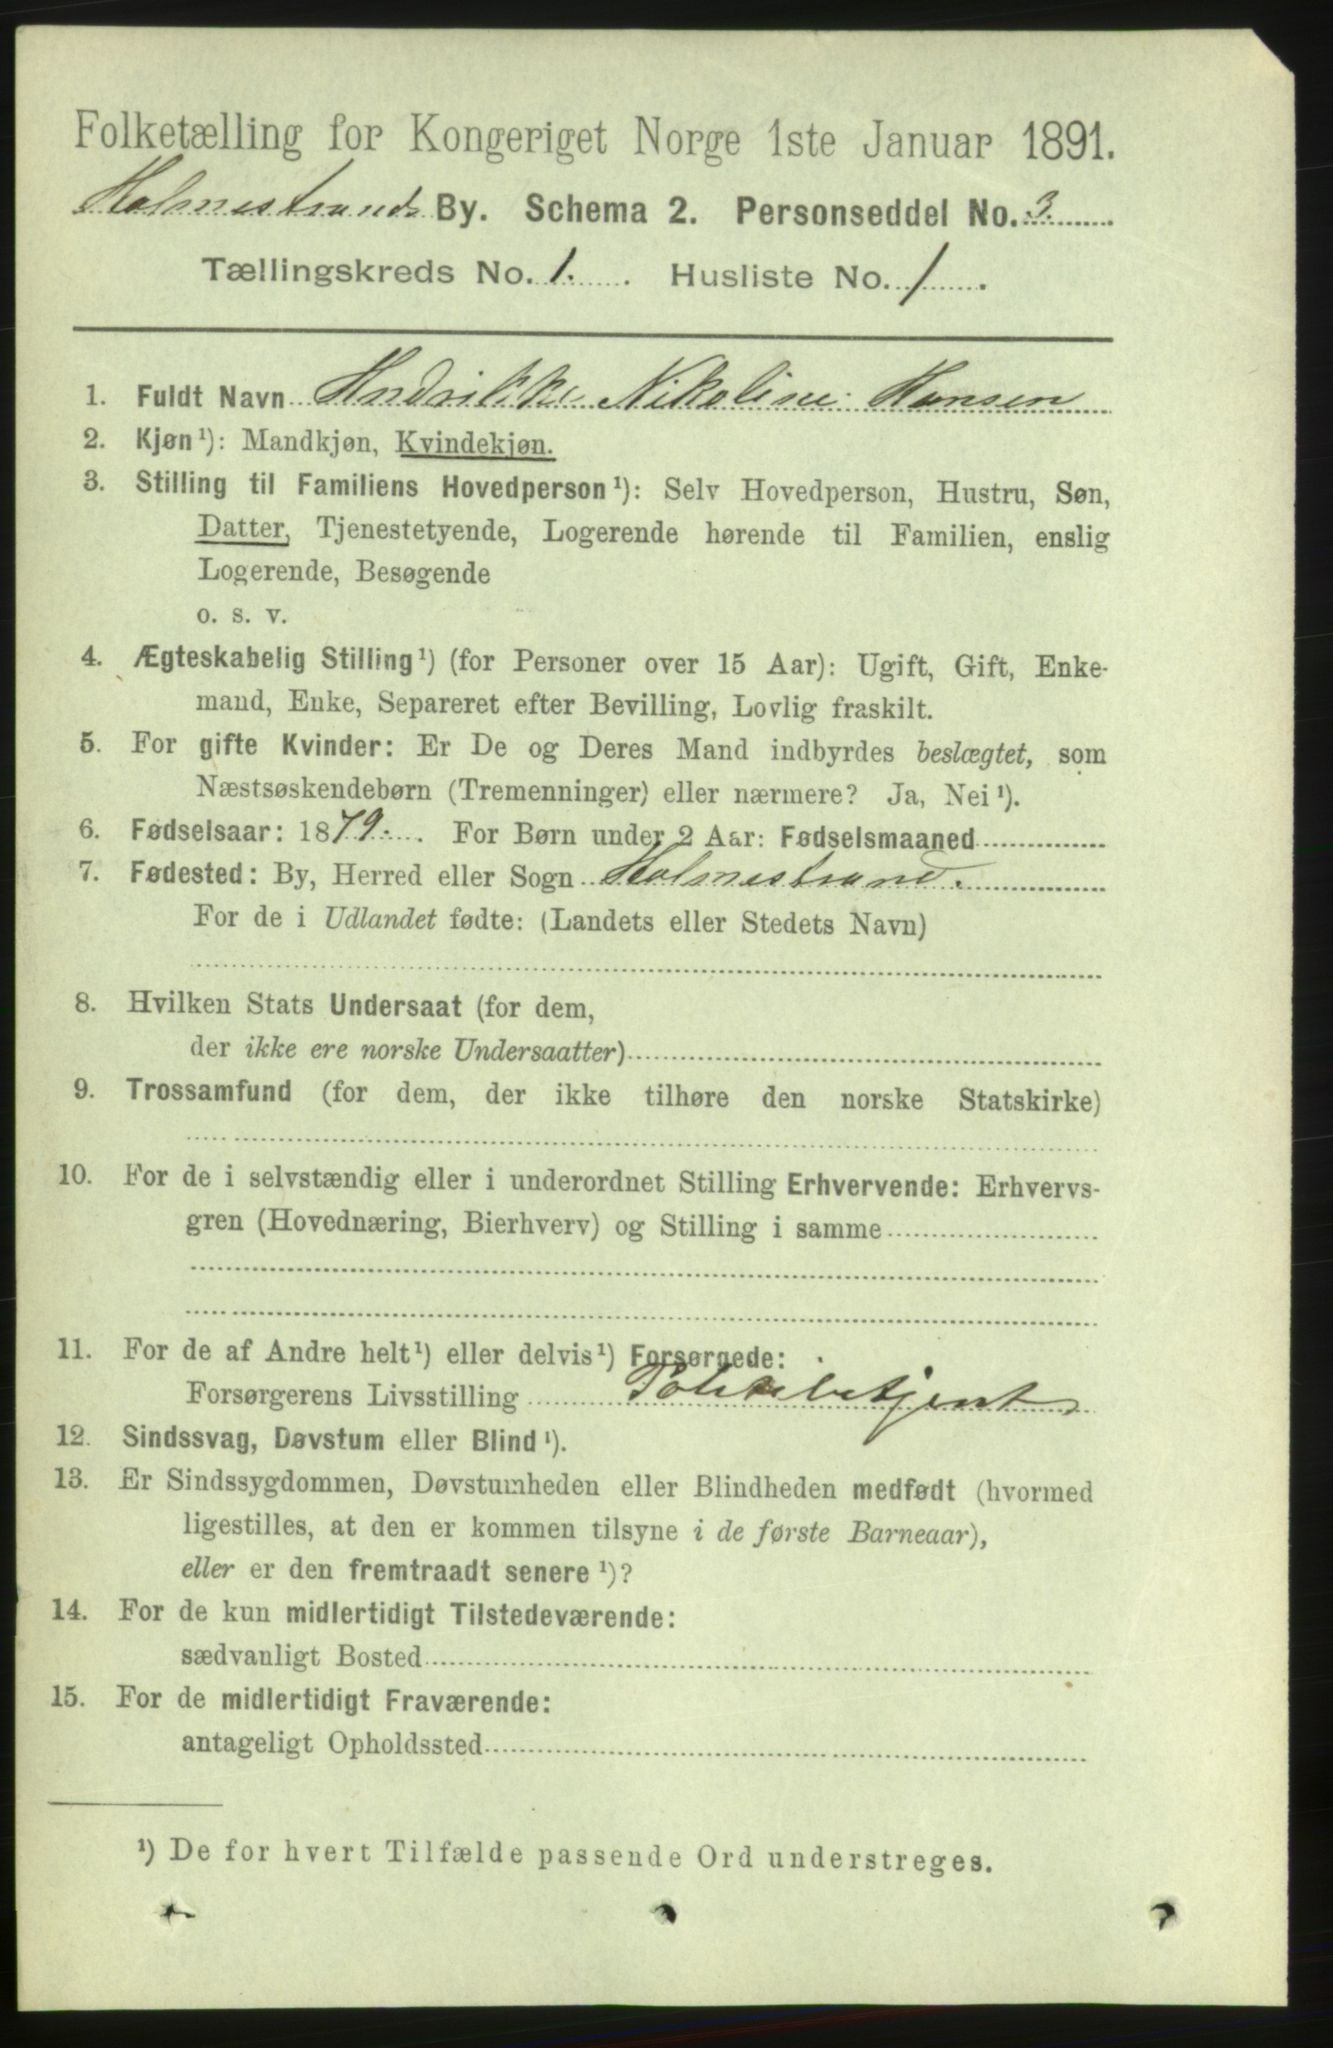 Folketælling for Kongeriget Norge 1ste Januar 1891.
Holmestrands By. Schema 2. Personseddel No. 3.
Tællingskreds No. 1. Husliste No. 1.
1. Fuldt Navn Hndrikke Nikoline Hansen
2. Kjøn¹): Mandkjøn, Kvindekjøn.
3. Stilling til Familiens Hovedperson¹): Selv Hovedperson, Hustru, Søn,
Datter, Tjenestetyende, Logerende hørende til Familien, enslig
Logerende, Besøgende
o. s. v.
4. Ægteskabelig Stilling¹) (for Personer over 15 Aar): Ugift, Gift, Enke-
mand, Enke, Separeret efter Bevilling, Lovlig fraskilt.
5. For gifte Kvinder: Er De og Deres Mand indbyrdes beslægtet, som
Næstsøskendebørn (Tremenninger) eller nærmere? Ja, Nei¹).
6. Fødselsaar: 1879. For Børn under 2 Aar: Fødselsmaaned
7. Fødested: By, Herred eller Sogn Holmestrand.
For de i Udlandet fødte: (Landets eller Stedets Navn)
8. Hvilken Stats Undersaat (for dem,
der ikke ere norske Undersaatter)
9. Trossamfund (for dem, der ikke tilhøre den norske Statskirke)
10. For de i selvstændig eller i underordnet Stilling Erhvervende: Erhvervs-
gren (Hovednæring, Bierhverv) og Stilling i samme
11. For de af Andre helt¹) eller delvis¹) Forsørgede:
Forsørgerens Livsstilling Politibetjent
12. Sindssvag, Døvstum eller Blind¹).
13. Er Sindssygdommen, Døvstumheden eller Blindheden medfødt (hvormed
ligestilles, at den er kommen tilsyne i de første Barneaar),
eller er den fremtraadt senere¹)?
14. For de kun midlertidigt Tilstedeværende:
sædvanligt Bosted
15. For de midlertidigt Fraværende:
antageligt Opholdssted
¹) De for hvert Tilfælde passende Ord understreges.